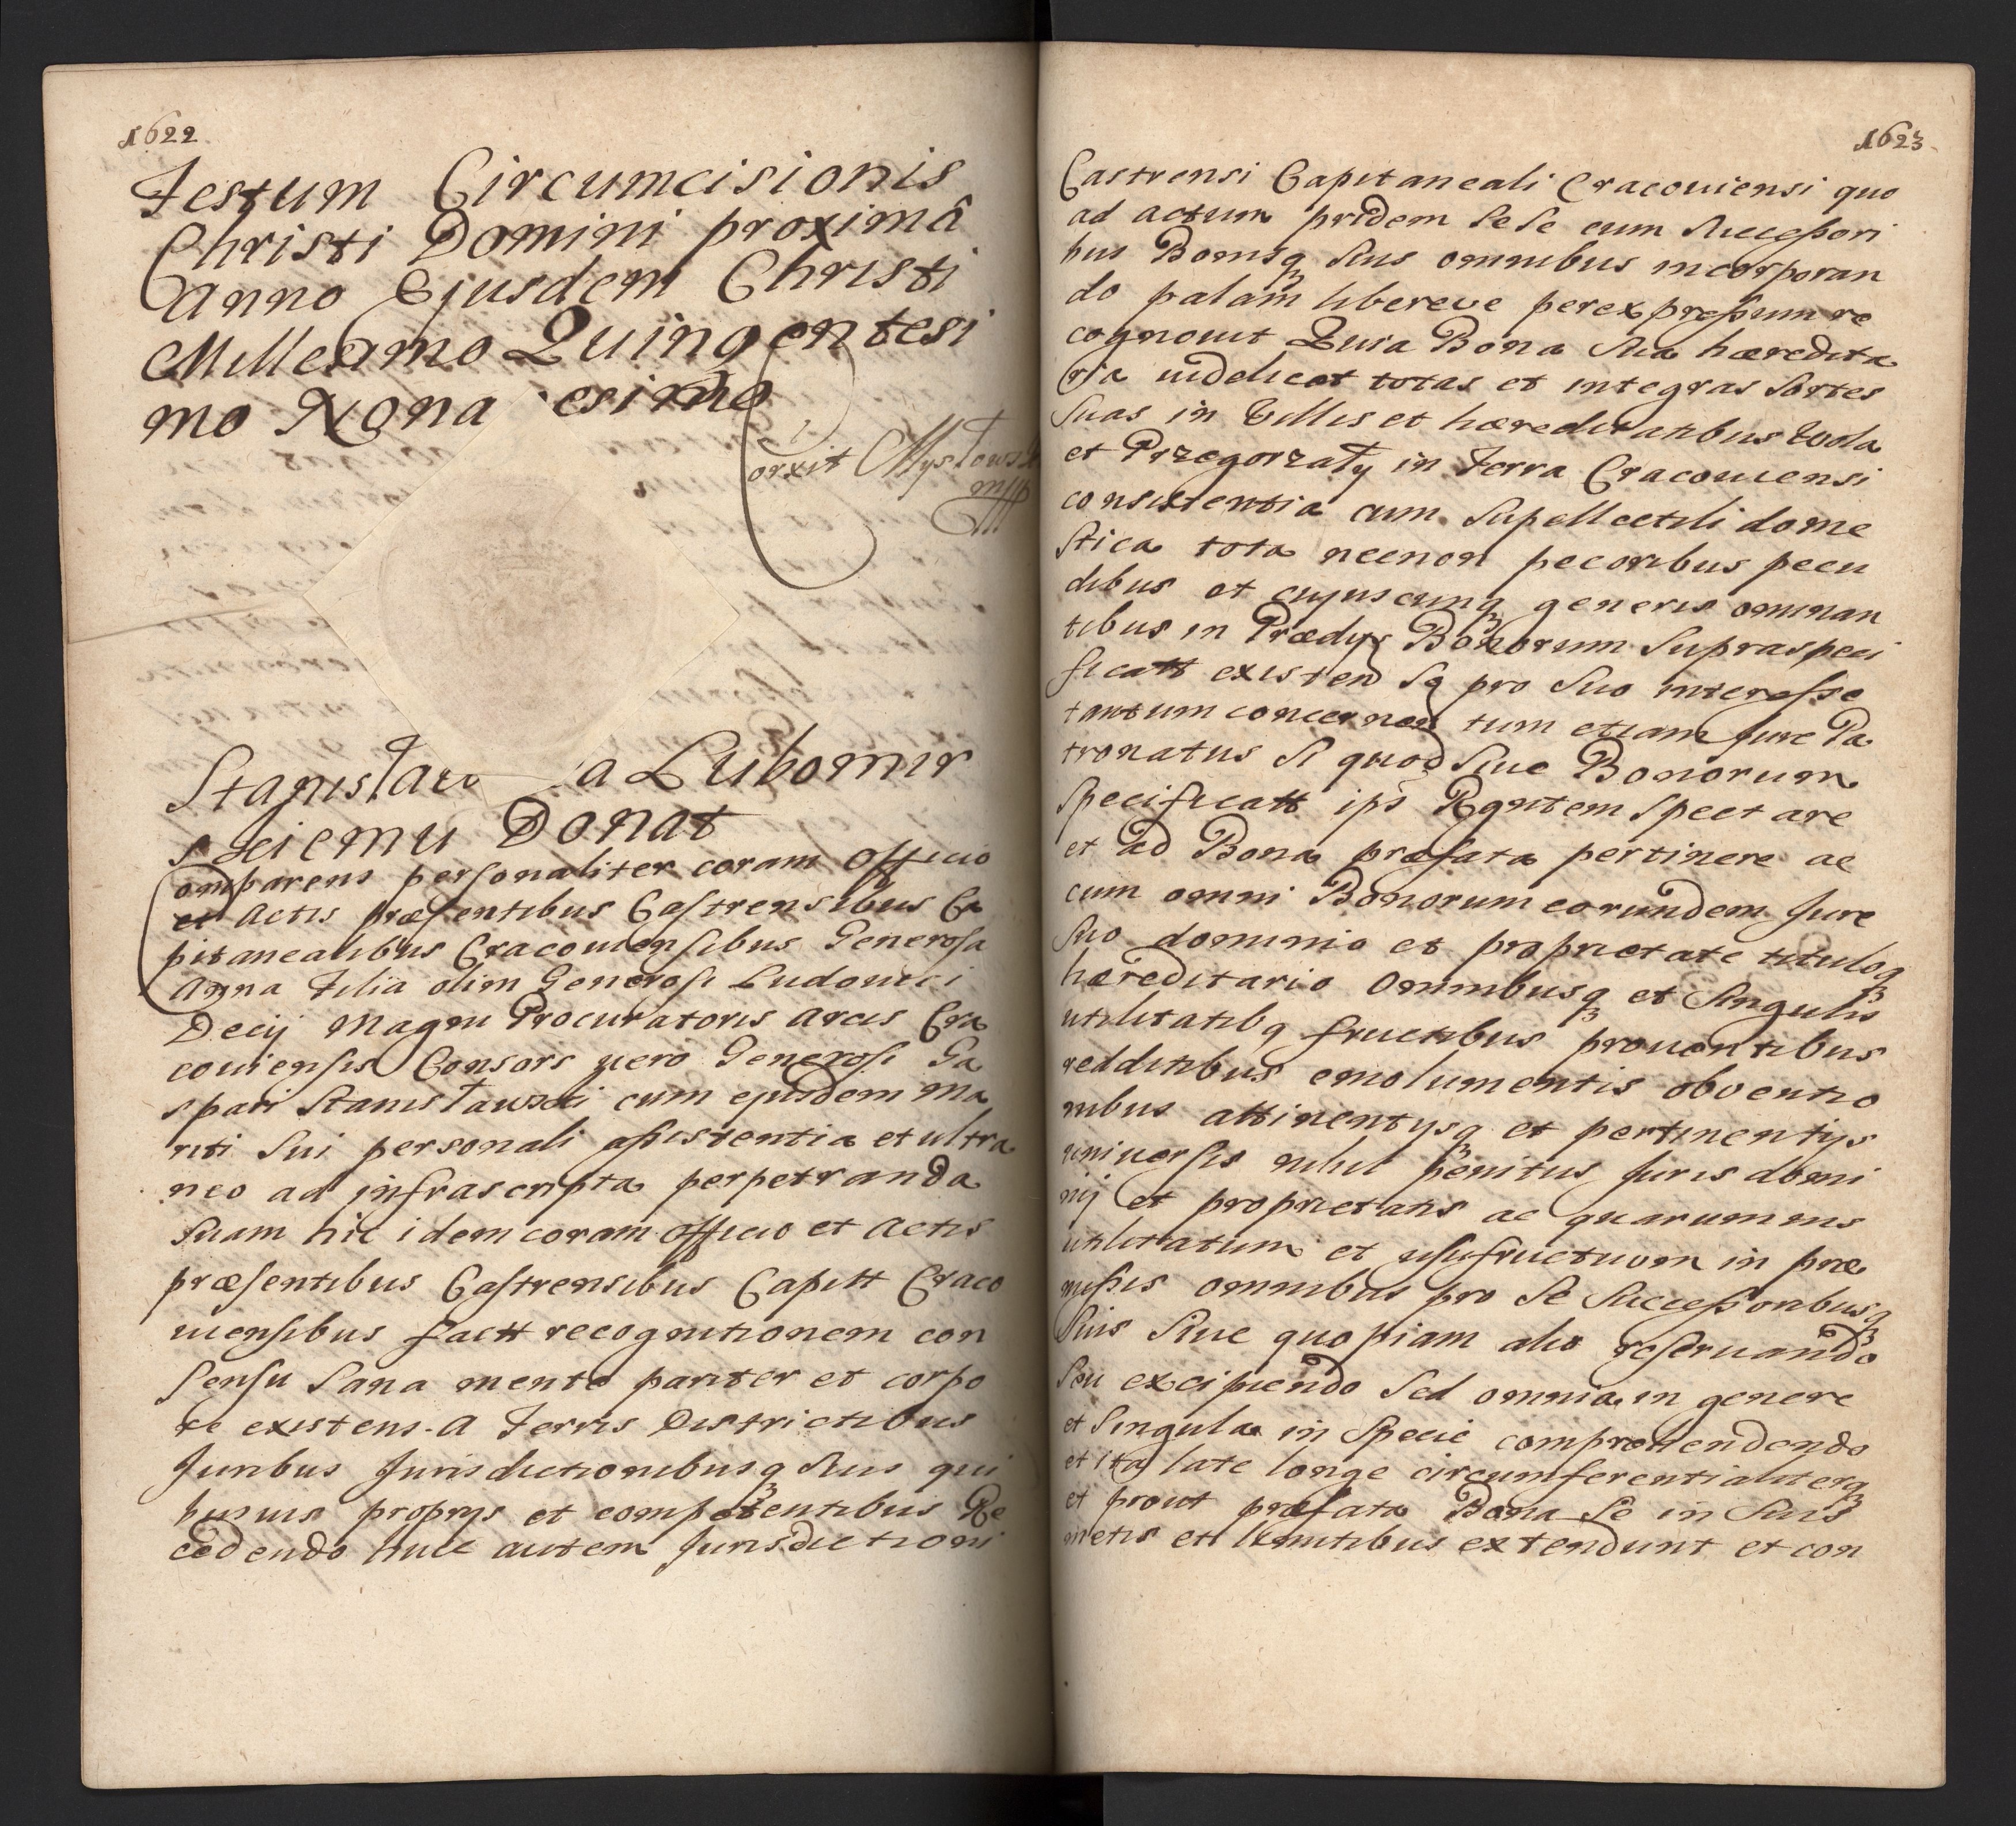 1622
Festum Circumcisionis
Christi Domini proximâ
Anno Ejusdem Christi
Millesimo Quingentesi
mo Nona esimo
orxit
mpp
Stanisław a Lubomir
skiemu Donat
Comparens personaliter coram Officio
et Actis præsentibus Castrensibus Ca
pitanealibus Cracoviensibus Generosa
Anna Filia olim Generosi Ludovici
Decij Magni Procuratoris Arcis Cra
coviensis Consors vero Generosi Ga
spari Stanisławski cum ejusdem Ma
riti Sui personali assistentia et ultra
neo ad infrascripta perpetranda
Suam hic idem coram Officio et Actis
præsentibus Castrensibus Capitt Craco
viensibus factt recognitionem con
sensu Sana mente pariter et corpo
re existens. A Terris Districtibus
Juribus Jurisdictionibusq3 Suis qui
busvis proprys et competentibus Re
cedendo huic autem Jurisdictioni
1623
Castrensi Capitaneali Cracoviensi quo
ad actum pridem Se Se cum Successori
bus Bonisq3 Suis omnibus incorporan
do palam libereve per expressum re
cognovit Quia Bona Sua hæredita
ria videlicet totas et integras Sortes
Suas in Villis et hæreditatibus Wola
et Przegorzały in Terra Cracoviensi
consistentia cum Supellectili dome
stica tota necnon pecoribus pecu
dibus et cujuscunq3 generis
tibus in Prædys Bonorum Supraspeci
ficatt existen Sq pro Suo interesse
tantum concernen tum etiam Jure Pa
tronatus Si quod Sive Bonorum
Specificatt ips Rgntem Spectare
et ad Bona præfata pertinere ac
cum omni Bonorum eorundem Jure
Suo dominio et proprietate tituloq3
hæreditario Omnibusq3 et Singulis
utilitatibq fructibus proventibus
redditibus emolumentis obventio
nibus attinentysq3 et pertinentijs
universis nihil penitus Juris domi
nij et proprietatis ac quarumvis
utilitatum et usufructuum in præ
missis omnibus pro Se Successoribusq3
Suis Sive quopiam alio reservando
Seu excipiendo Sed omnia in genere
et Singula in Specie comprehendendo
et ita late longe circumferentialiterq3
et prout præfata Bona Se in Suis
metis et limitibus extendunt et con